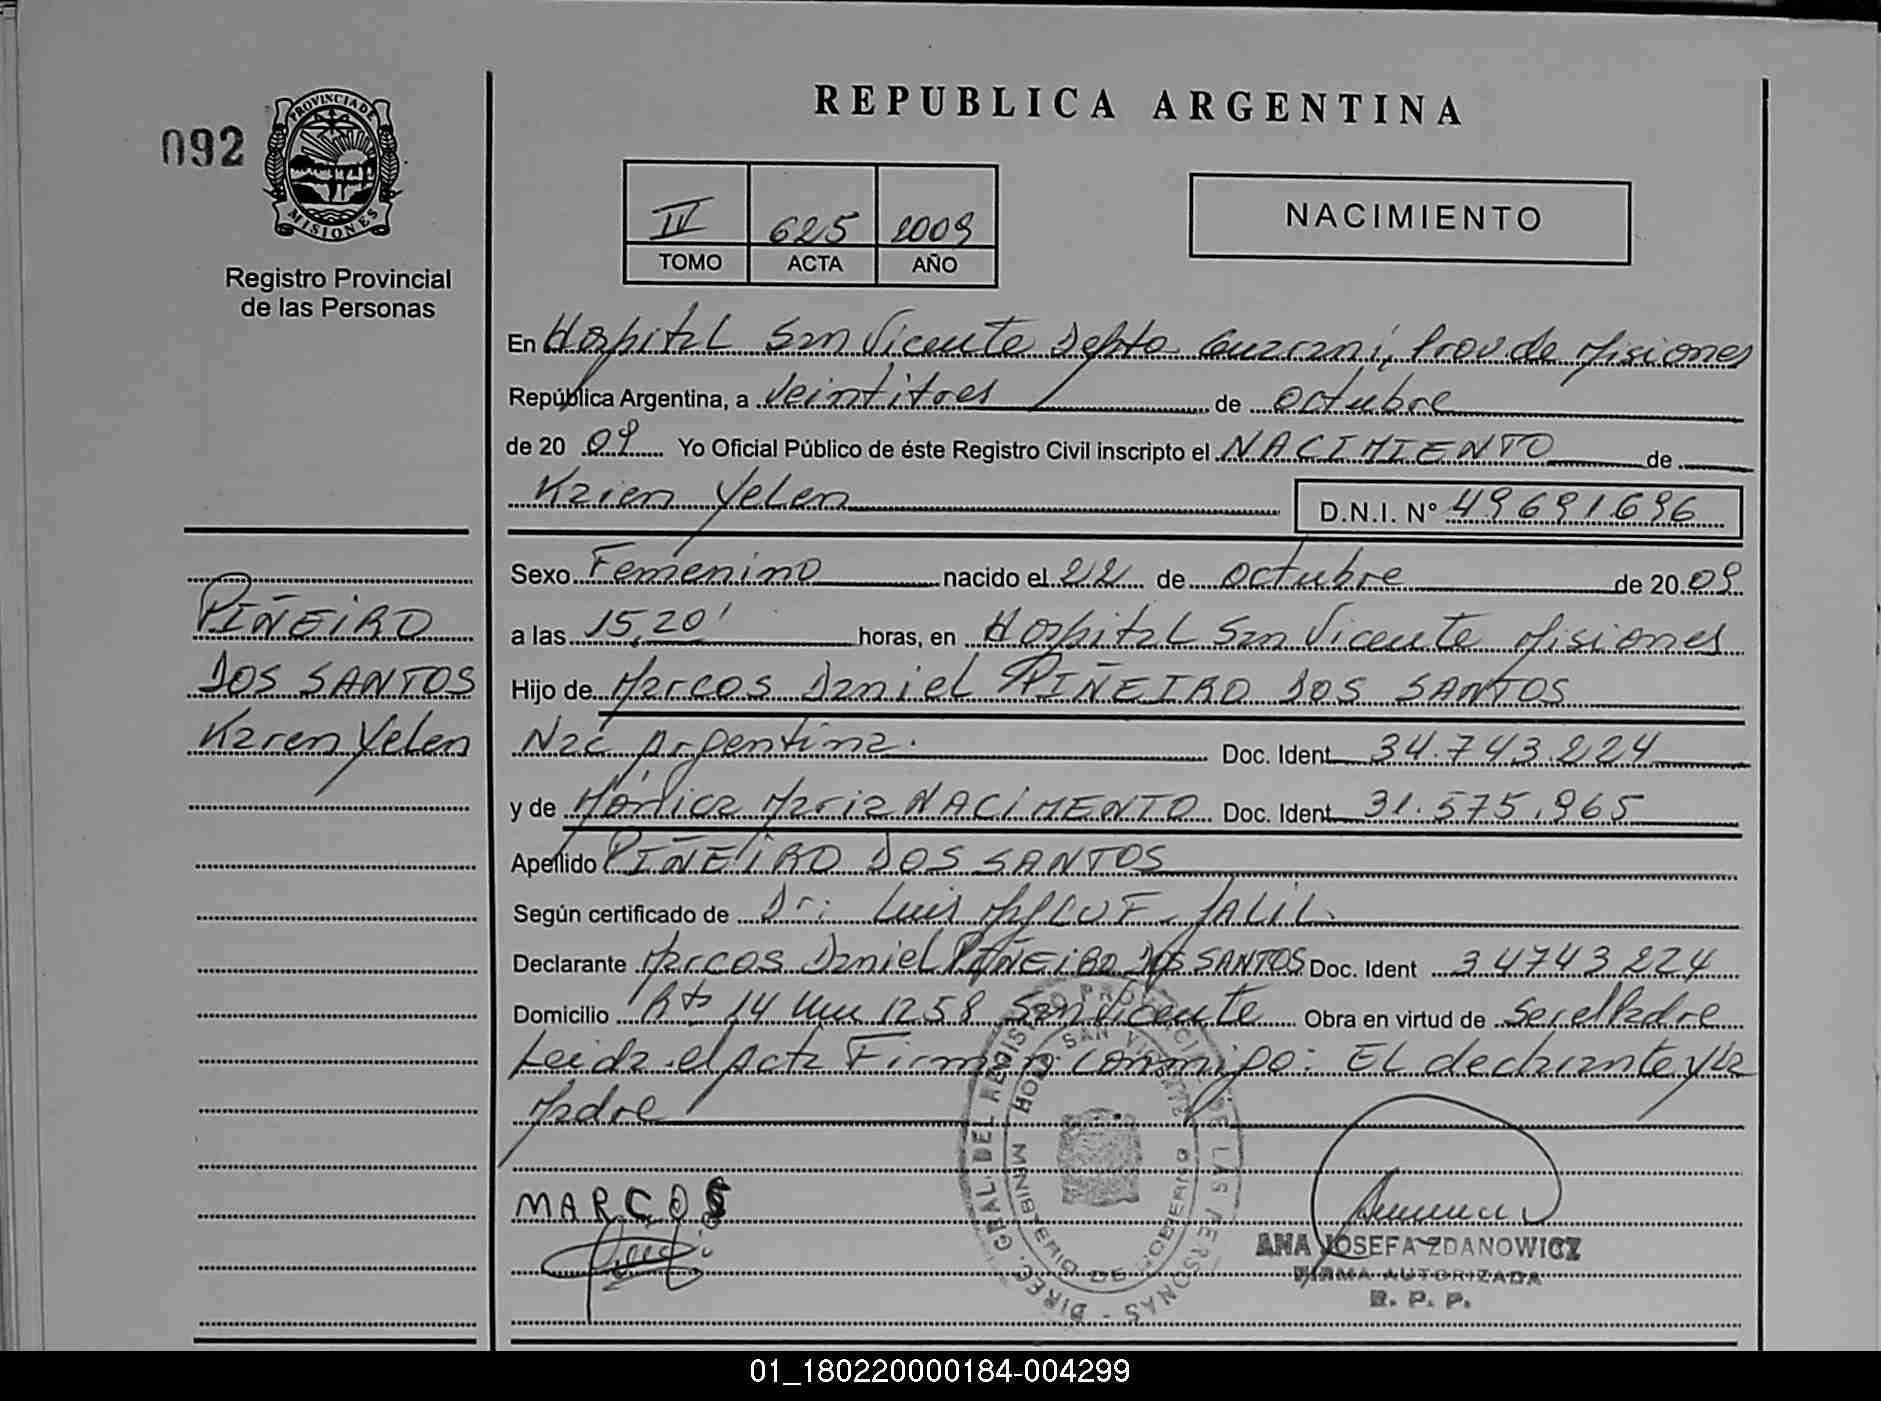 092
PROVINCIA DE
MISIONES
Registro Provincial
de las Personas
REPUBLICA ARGENTINA
IV 625 2009
TOMO ACTA AÑO
NACIMIENTO
En Hospital San Vicente Depto Guarani, Prov. de Misiones
República Argentina, a Veintitres de octubre
de 20 09 Yo Oficial Público de éste Registro Civil inscripto el NACIMIENTO de
Karen Yelen D.N.I. N° 49691696
Sexo Femenino nacido el 22 de octubre de 20 09
a las 15,20' horas, en Hospital San Vicente Misiones
Hijo de Marcos Daniel PIÑEIRO DOS SANTOS
Nac Argentina. Doc. Ident 34.743.224
y de Mónica Maria NACIMENTO Doc. Ident 31.575.965
Apellido PIÑEIRO DOS SANTOS
Según certificado de Dr: Luis JALIL.
Declarante Marcos Daniel PIÑEIRO DOS SANTOS Doc. Ident 34743224
Domicilio Rta 14 km 1258 San Vicente Obra en virtud de Ser el Padre
Leida el Acta Firman conmigo: El declarante y la
Madre
PIÑEIRO
DOS SANTOS
Karen Yelen
MARCOS
DIREC. GRAL. DEL REGISTRO PROVINCIAL DE LAS PERSONAS
SAN VICENTE
MINISTERIO DE GOBIERNO
ANA JOSEFA ZDANOWICZ
FIRMA AUTORIZADA
R. P. P.
01_180220000184-004299